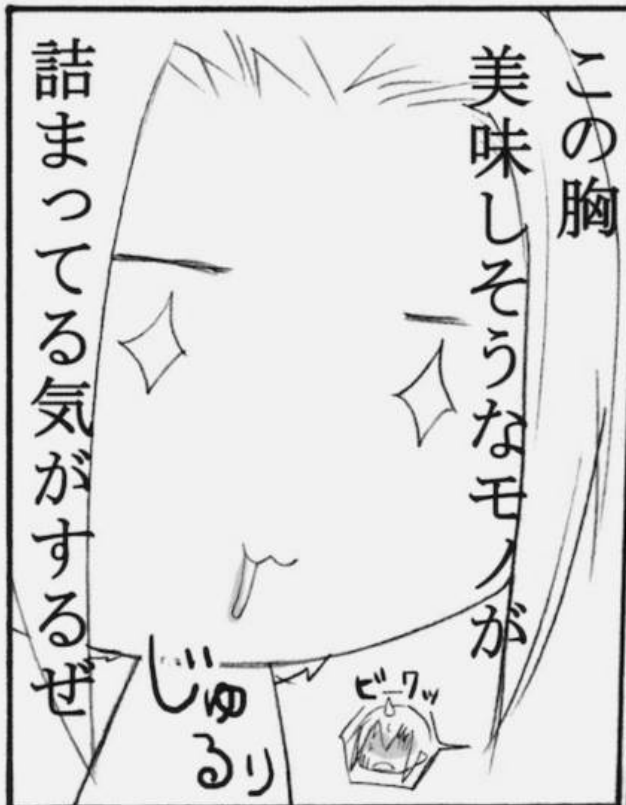 この胸
美味しそうなモノが
詰まってる気がするぜ
じゅ
るり
ビークッ